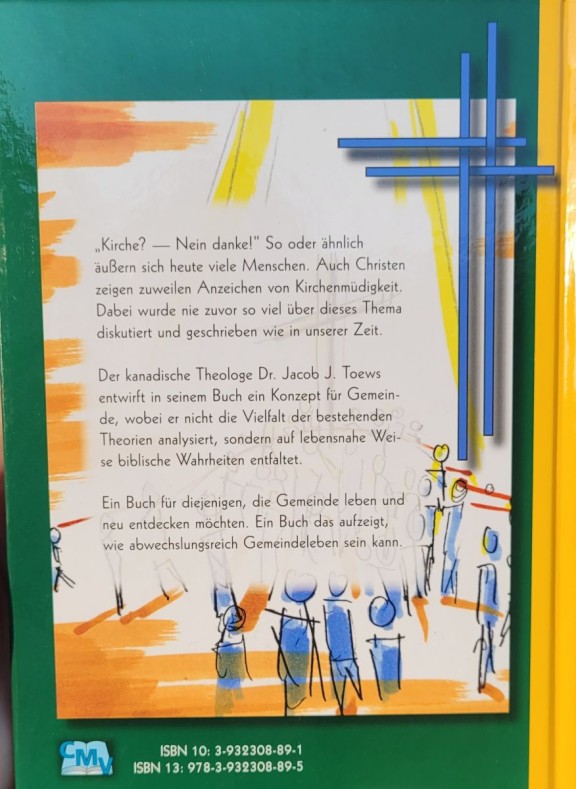 „Kirche? — Nein danke!" So oder ähnlich
äußern sich heute viele Menschen. Auch Christen
zeigen zuweilen Anzeichen von Kirchenmüdigkeit.
Dabei wurde nie zuvor so viel über dieses Thema
diskutiert und geschrieben wie in unserer Zeit.
Der kanadische Theologe Dr. Jacob J. Toews
entwirft in seinem Buch ein Konzept für Gemein-
de, wobei er nicht die Vielfalt der bestehenden
Theorien analysiert, sondern auf lebensnahe Wei-
se biblische Wahrheiten entfaltet.
Ein Buch für diejenigen, die Gemeinde leben und
neu entdecken möchten. Ein Buch das aufzeigt,
wie abwechslungsreich Gemeindeleben sein kann.
CMV
ISBN 10: 3-932308-89-1
ISBN 13: 978-3-932308-89-5